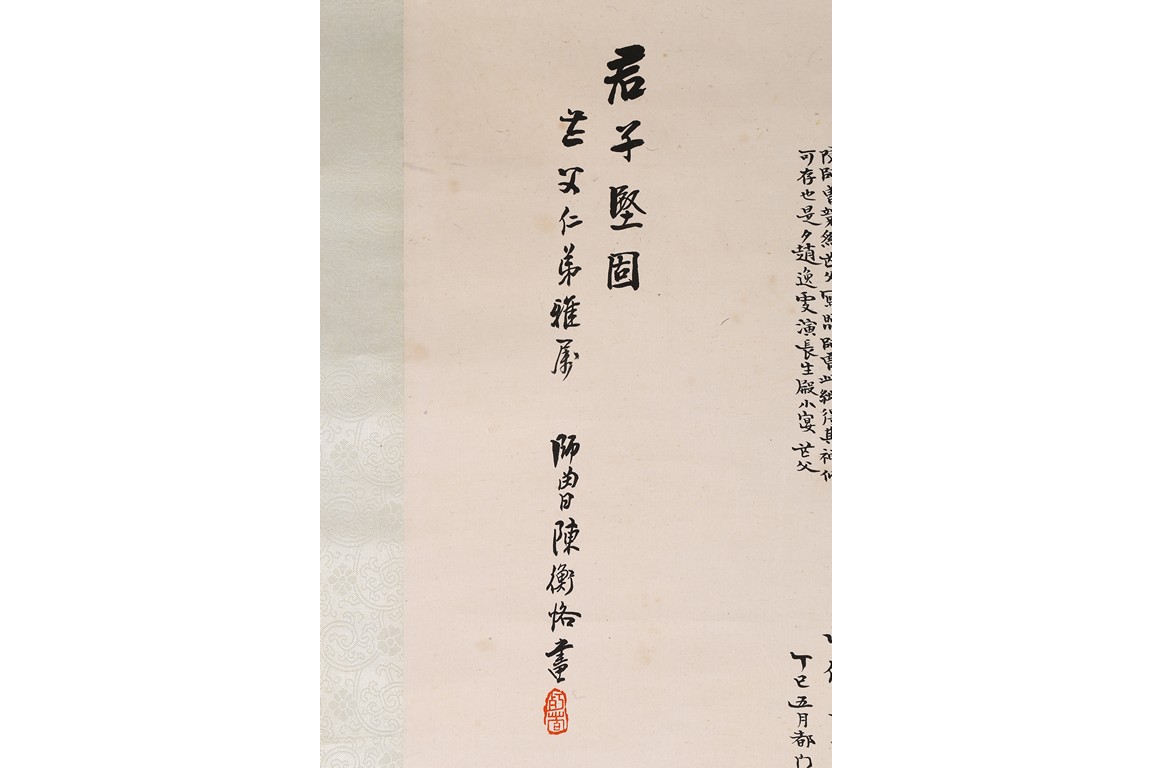 可存也是夕趙逸叟演長生殿小宴 茫父
丁巳五月都门
君子堅固
茫父仁弟雅属 師曾陳衡恪畫
師曾